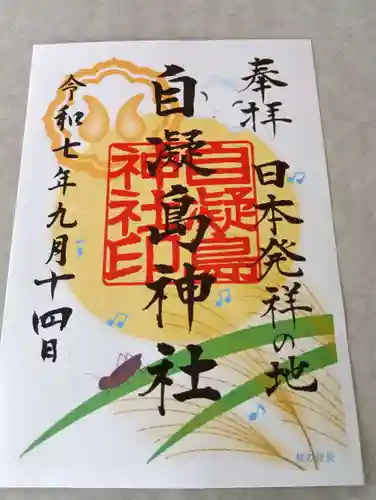 奉拝
日本発祥の地
自凝島神社
自凝島
神社印
令和七年九月十四日